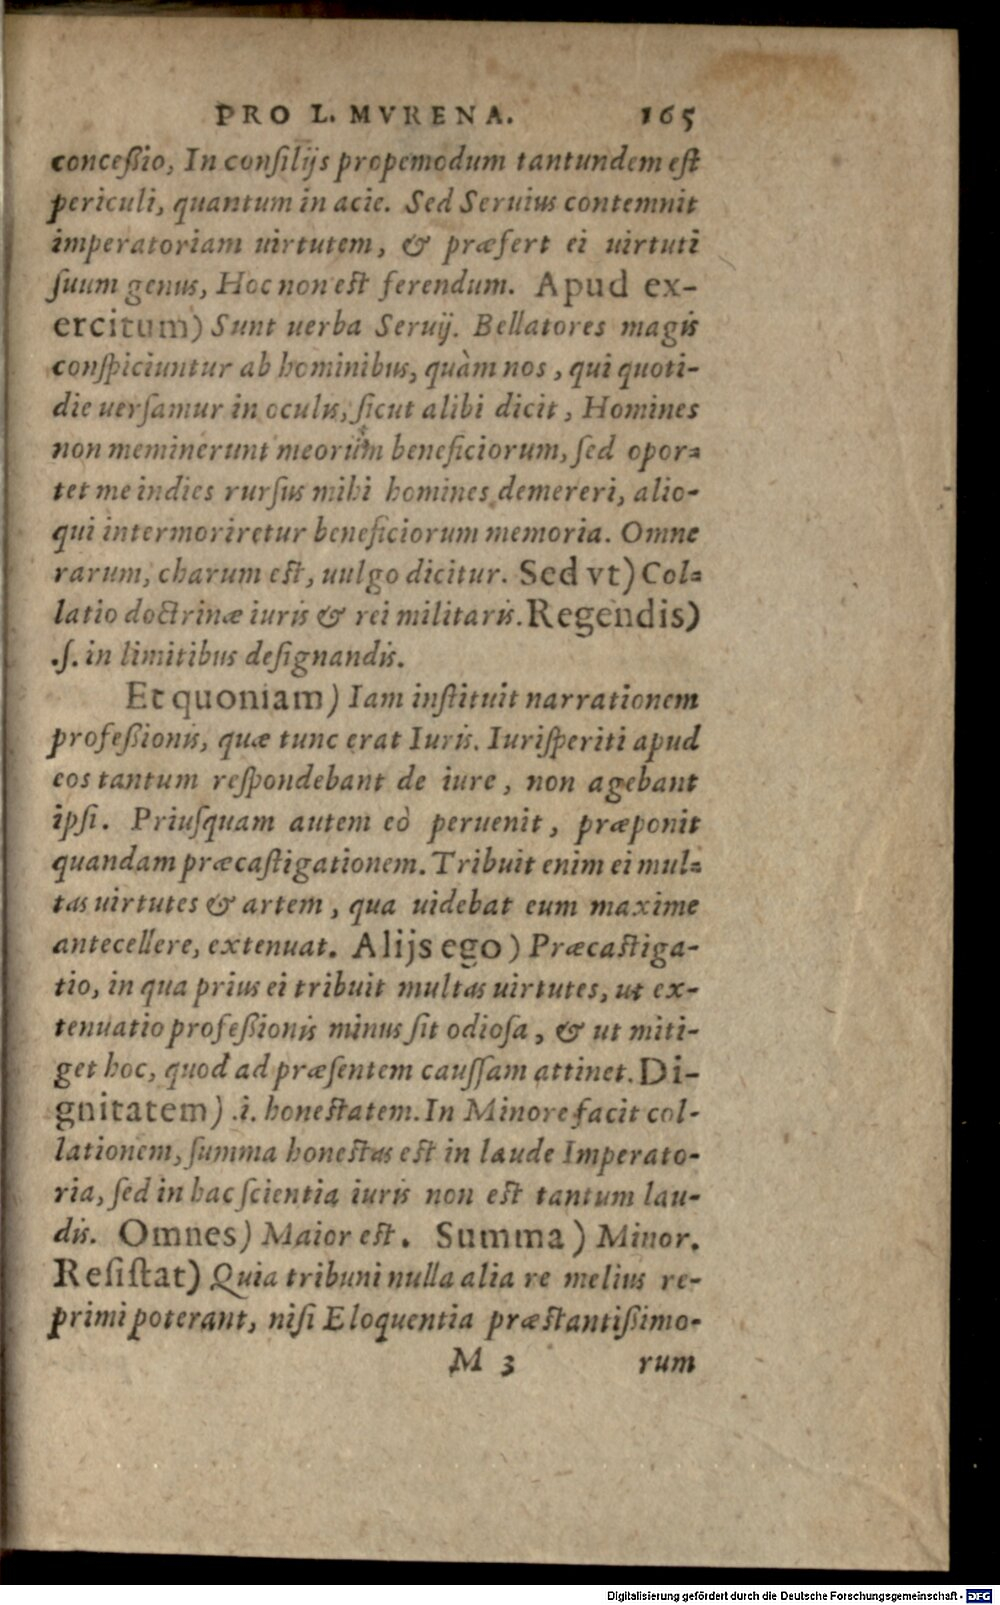 PRO L. MVRENA. 165
conceßio, In conſilijs propemodum tantundem eſt
periculi, quantum in acie. Sed Seruius contemnit
imperatoriam uirtutem, & præfert ei uirtuti
ſuum genus, Hoc non eſt ferendum. Apud ex-
ercitum) Sunt uerba Seruij. Bellatores magis
conſpiciuntur ab hominibus, quàm nos, qui quoti-
die uerſamur in oculis, ſicut alibi dicit, Homines
non meminerunt meorum beneficiorum, ſed opor=
tet me indies rurſus mihi homines demereri, alio-
qui intermoriretur beneficiorum memoria. Omne
rarum, charum eſt, uulgo dicitur. Sed vt) Col=
latio doctrinæ iuris & rei militaris. Regendis)
.ſ. in limitibus deſignandis.
Et quoniam) Iam inſtituit narrationem
profeßionis, quæ tunc erat Iuris. Iuriſperiti apud
eos tantum reſpondebant de iure, non agebant
ipſi. Priuſquam autem eò peruenit, præponit
quandam præcaſtigationem. Tribuit enim ei mul=
tas uirtutes & artem, qua uidebat eum maxime
antecellere, extenuat. Alijs ego) Præcaſtiga-
tio, in qua prius ei tribuit multas uirtutes, ut ex-
tenuatio profeßionis minus ſit odioſa, & ut miti-
get hoc, quod ad præſentem cauſſam attinet. Di-
gnitatem) .i. honeſtatem. In Minore facit col-
lationem, ſumma honeſtas eſt in laude Imperato-
ria, ſed in hac ſcientia iuris non eſt tantum lau-
dis. Omnes) Maior eſt. Summa) Minor.
Reſiſtat) Quia tribuni nulla alia re melius re-
primi poterant, niſi Eloquentia præſtantißimo-
M 3 rum
Digitalisierung gefördert durch die Deutsche Forschungsgemeinschaft - DFG